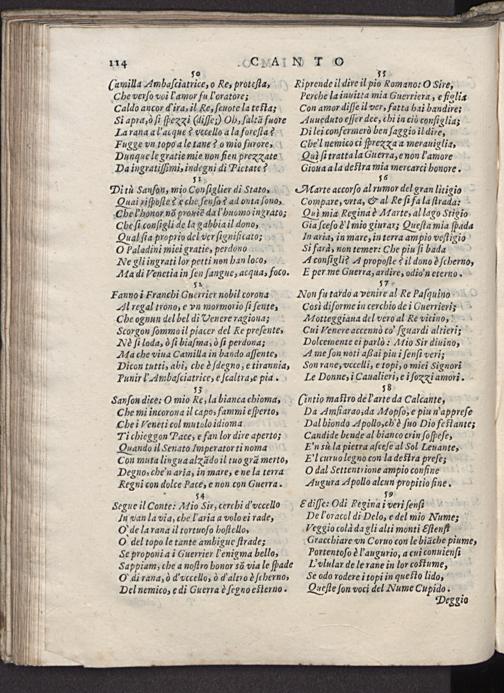 114 CANTO
50
Camilla Ambasciatrice, o Re, protesta,
Che verso voi l'amor fu l'oratore;
Caldo ancor d'ira, il Re, scuote la testa;
Si apra, ò si spezzi (disse;) Oh, saltà fuore
La rana a l'acque? vccello a la foresta?
Fugge vn topo a le tane? o mio furore,
Dunque le gratie mie non sien prezzate
Da ingratissimi, indegni di Pietate?
51
Di tù Sanson, mio Consiglier di Stato,
Quai risposte? e che senso? ad onta sono,
Che l'honor nõ proviẽ da l'huomo ingrato;
Che si consigli de la gabbia il dono,
Qual sia proprio del ver significato;
O Paladini miei gratie, perdono
Ne gli ingrati lor petti non han loco,
Ma di Venetia in sen sangue, acqua, foco.
52
Fanno i Franchi Guerrier nobil corona
Al regal trono, e vn mormorio si sente,
Che ognun del bel di Venere ragiona;
Scorgon sommo il piacer del Re presente,
Nè si loda, ò si biasma, ò si perdona;
Ma che viua Camilla in bando assente,
Dicon tutti, ahi, che è sdegno, e tirannia,
Punir l'Ambasciatrice, e scaltra, e pia.
53
Sanson dice: O mio Re, la bianca chioma,
Che mi incorona il capo, fammi esperto,
Che i Veneti col muto lo idioma
Ti chieggon Pace, e fan lor dire aperto;
Quando il Senato Imperator ti noma
Con muta lingua alzãdo il tuo grã merto,
Degno, che'n aria, in mare, e ne la terra
Regni con dolce Pace, e non con Guerra.
54
Segue il Conte: Mio Sir, cerchi d'vccello
In van la via, che l'aria a volo ei rade,
O' de la rana il tortuoso hostello,
O' del topo le tante ambigue strade;
Se proponi a i Guerrier l'enigma bello,
Sappiam, che a nostro honor sã via le spade
O' di rana, ò d'vccello, ò d'altro è scherno,
Del nemico, e di Guerra è segno esterno.
55
Riprende il dire il pio Romano: O Sire,
Perche la inuitta mia Guerriera, e figlia
Con amor disse il ver, fatta hai bandire;
Auueduto esser dee, chi in ciò consiglia;
Di lei confermerò ben saggio il dire,
Che'l nemico ei sprezza a merauiglia,
Quì si tratta la Guerra, e non l'amore
Gioua a la destra mia mercarci honore.
56
Marte accorso al rumor del gran litigio
Compare, vrta, & al Re si fa la strada:
Quì mia Regina è Marte, al lago Stigio
Gia sceso è'l mio giura; Questa mia spada
In aria, in mare, in terra ampio vestigio
Si farà, non temer: Che piu si bada
A consigli? A proposte? il dono è scherno,
E per me Guerra, ardire, odio'n eterno.
57
Non fu tardo a venire al Re Pasquino
Così disforme in cerchio de i Guerrieri;
Motteggiana del vero al Re vicino,
Cui Venere accennò co' sguardi altieri;
Dolcemente ei parlò: Mio Sir diuino,
A me son noti assai piu i sensi veri;
Son rane, vccelli, e topi, o miei Signori
Le Donne, i Caualieri, e i sozzi amori.
58
Cintio mastro de l'arte da Calcante,
Da Amfiarao, da Mopso, e piu n'apprese
Dal biondo Apollo, ch'è suo Dio festante;
Candide bende al bianco crin sospese,
E'n sù la pietra ascese al Sol Leuante,
E'l curuo legno con la destra prese;
O dal Settentrione ampio confine
Augura Apollo alcun propitio fine.
59
E disse: Odi Regina i veri sensi
De l'oracol di Delo, e del mio Nume;
Veggio colà da gli alti monti Estensi
Gracchiare vn Coruo con le biãche piume,
Portentoso è l'augurio, a cui conuiensi
L'vlular de le rane in lor costume,
Se odo rodere i topi in questo lido,
Queste son voci del Nume Cupido.
Deggio